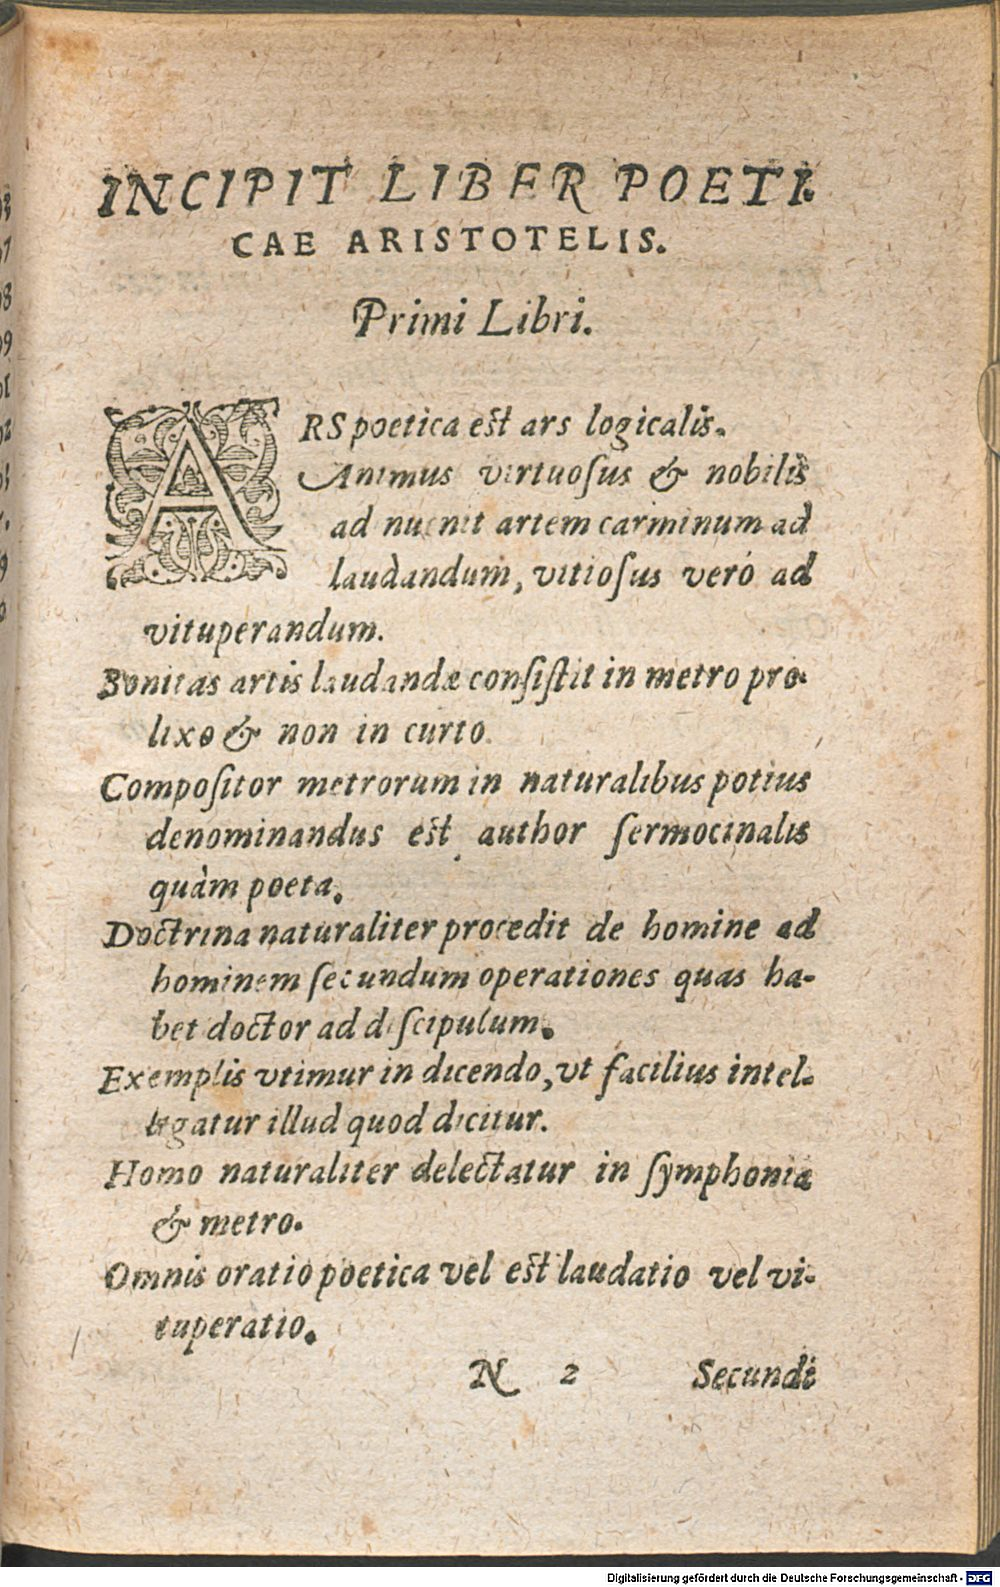 INCIPIT LIBER POETI-
CAE ARISTOTELIS.
Primi Libri.
ARS poetica est ars logicalis.
Animus virtuosus & nobilis
ad nuenit artem carminum ad
laudandum, vitiosus verò ad
vituperandum.
Bonitas artis laudandæ consistit in metro pro-
lixo & non in curto.
Compositor metrorum in naturalibus potius
denominandus est author sermocinalis
quàm poeta.
Doctrina naturaliter procedit de homine ad
hominem secundum operationes quas ha-
bet doctor ad discipulum.
Exemplis vtimur in dicendo, vt facilius intel-
ligatur illud quod dicitur.
Homo naturaliter delectatur in symphonia
& metro.
Omnis oratio poetica vel est laudatio vel vi-
tuperatio.
N 2 Secundi
Digitalisierung gefördert durch die Deutsche Forschungsgemeinschaft - DFG